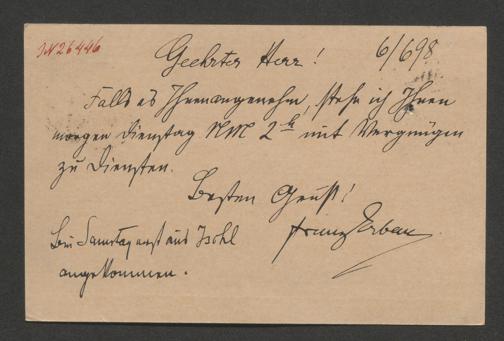 IN 26446
Geehrter Herr! 6/6 98
Falls es Ihnen angenehm, stehe ich Ihnen
morgen Dienstag NM 2 h mit Vergnügen
zu Diensten.
Besten Gruß!
Bin Samstag erst aus Ischl Franz Erban
angekommen.